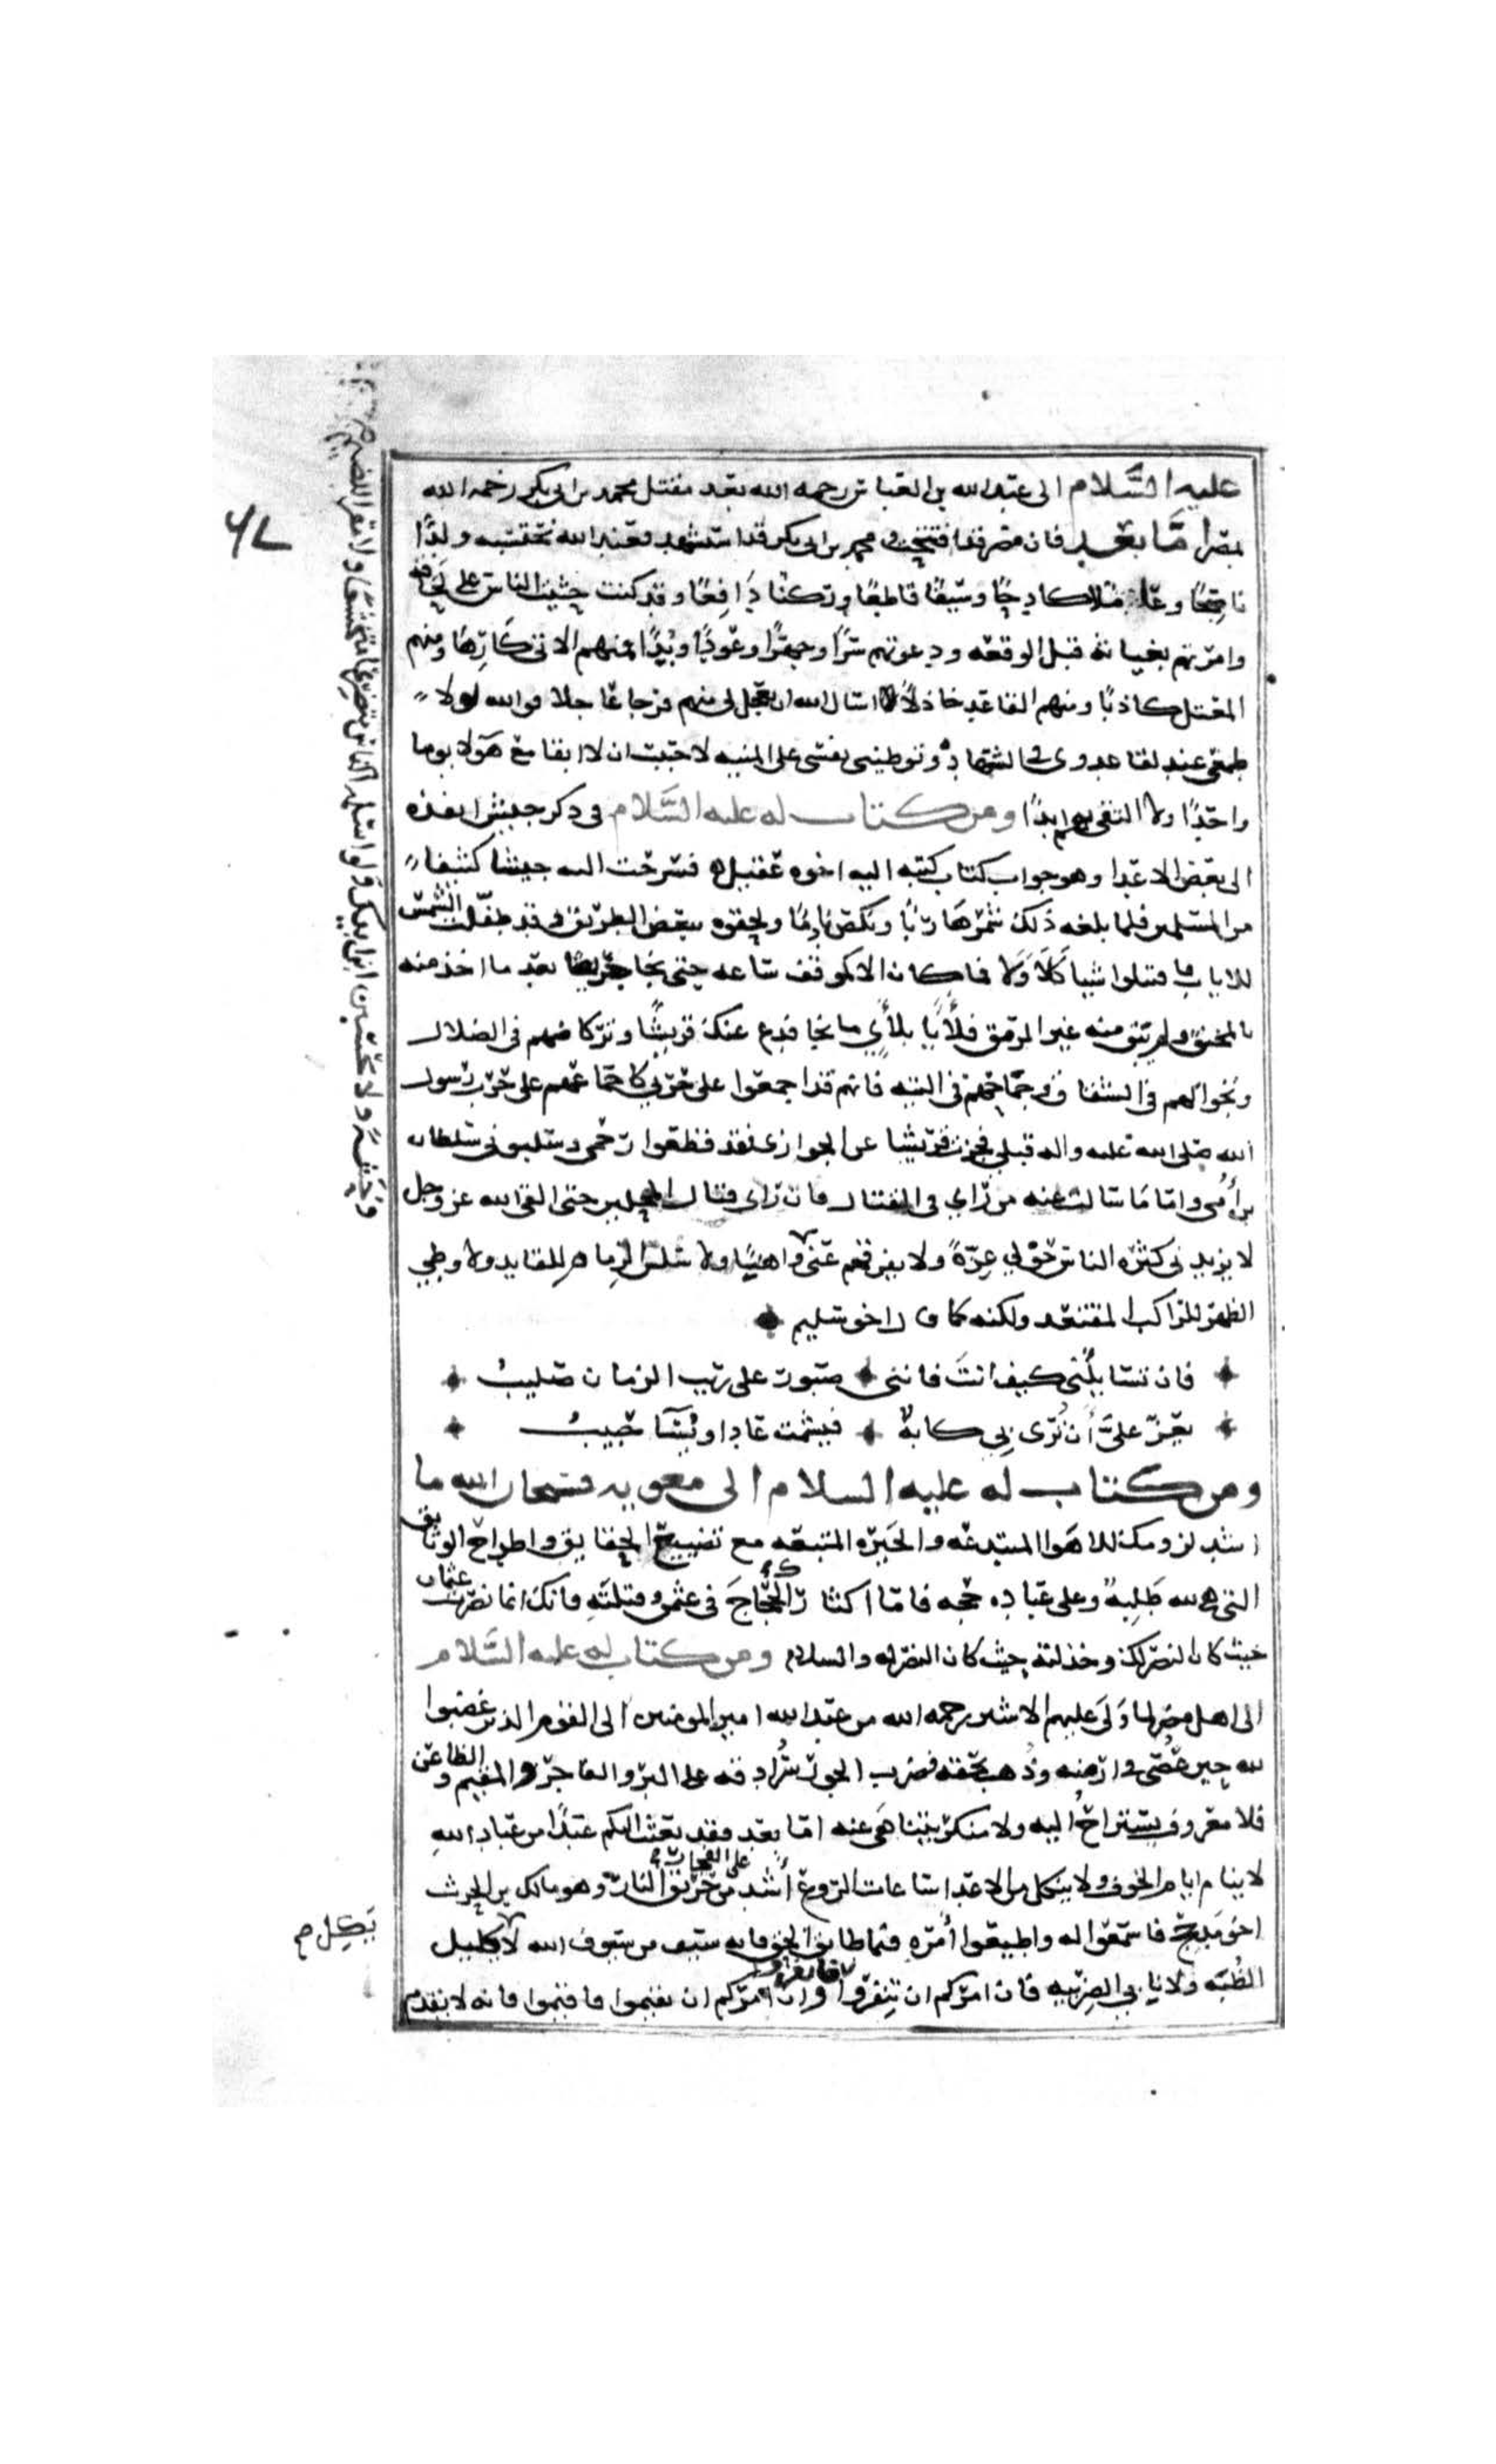 عليه السَّلام الى عبد الله بن العباس رحمه الله بعد مقتل محمد بن ابى بكر رحمه الله
بمصر امَّا بعد فان مصر قد افتتحت ومحمد بن ابى بكر قد استشهد فعند الله نحتسبه ولدًا
ناصحًا وعاملا كادحًا وسيفًا قاطعًا وركنا دَافِعًا وقد كنت حثثت الناس على لحاقه
وامرتهم بغياثه قبل الوقعه ودعوتهم سرًا وجهرًا وعَودًا وبدًا فمنهم الاتى كَارِهًا ومنهم
المعتل كاذبًا ومنهم القاعد خاذلاً اسال الله ان يجعل لى منهم فرجا عاجلا فوالله لولا
طمعى عند لقا عدوى فى الشهادة وتوطينى نفسى على المنيه لاحببت ان لا ابقا مع هَولا يوما
واحدًا ولا التقى بهم ابدًا ومن كتاب له عليه السَّلام فى ذكر جيش انفذه
الى بعض الاعدا وهو جواب كتاب كتبه اليه اخوه عقيل فسرحت اليه جيشا كثيفا
من المسلمين فلما بلغه ذلك شمر هَاربًا ونكص نادِمًا ولحقوه ببعض الطريق وقد طفّلت الشمس
للاياب فاقتتلوا شيا كَلَا وَلَا فما كان الا كموقف ساعه حتى نجا جريضًا بعد ما اخذ منه
بالمخنق ولم يبق منه غير الرمق فلأيًا بلأيٍ ما نجا فدع عنك قريشًا وتركاضهم فى الضلال
وتجوالهم فى الشقاق وجماحهم فى التيه فانهم قد اجمعوا على حربى كاجماعهم على حرب رسول
الله صلى الله عليه واله قبلى فجزت قريشا عنى الجوازى فقد قطعوا رحمى وسلبونى سلطان
بن أُمى واما ما سالت عنه من رأى فى القتال فان رأى قتال المحلين حتى القى الله عز وجل
لا يزيدنى كثره الناس حَوْلي عِزّةً ولا تفرقهم عنى واهنا ولا سلس الزمام للقايد ولا وطِي
الظهر للراكب المقتعد ولكنه كما قال اخو سليم
فان تسايلُنى كيف انتَ فاننى صبور على ريب الزمان صليبُ
يعِزّ علىَّ أن تُرَى بِى كابة فيشمت عاد او يُسَآ حبيبُ
ومن كتاب له عليه السلام الى معويه فسبحان الله ما
اشد لزومك للاهوا المبتدعه والحَيره المتبعه مع تضييع الحقايق واطراح الوثايق
التى هى لله طَلِبهٌ وعلى عباده حجه فاما اكثارك الحِجَاجَ فى عثمن وقتلتِهِ فانك انما نصرت عثمان
حيث كان النصر لك وخذلته حيث كان النصر له والسلام ومن كتاب له عليه السَّلام
الى اهل مصر لما وَلَى عليهم الاشتر رحمه الله من عبد الله امير المومنين الى القوم الذين غضبوا
لله حين عُصِى فى ارضه وذُهب بحقه فضرب الجور سُرادقه على البر والفاجر والمقيم والظاعن
فلا معروف يستراح اليه ولا منكر يتناهَى عنه امّا بعد فقد بعثت اليكم عبدًا من عباد اللهِ
لا ينام ايام الخوف ولا ينكل من الاعدا ساعات الروع أشد على الفجار من حريق النار وهو مالك بن الحرث
اخو مذحج فاسمعوا له واطيعوا أمْرَه فيما طابق الحق فانه سيف من سيوف الله لا كليل
الظُبَه ولا نابى الضرِيبه فان امركم ان تنفروا فانفروا وان امركم ان تقيموا فاقيموا فانه لا يقدم